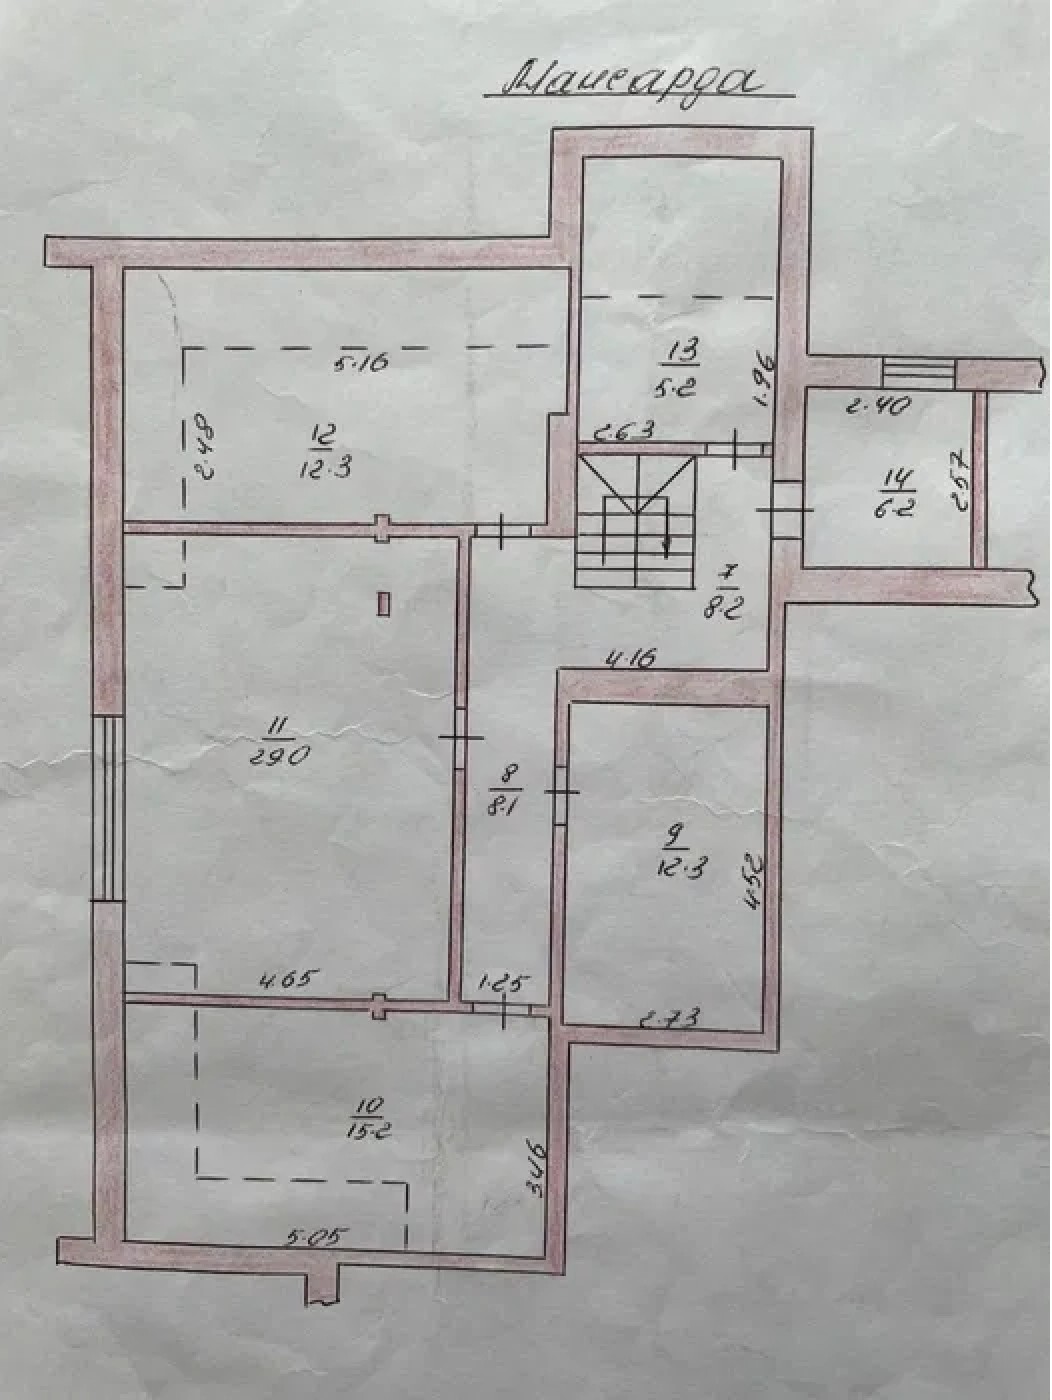 Мансарда
13
5.2
1.96
2.63
2.40
14
6.2
2.57
5.16
2.48
12
12.3
7
8.2
4.16
11
29.0
8
8.1
9
12.3
4.52
4.65
1.25
2.73
10
15.2
3.46
5.05